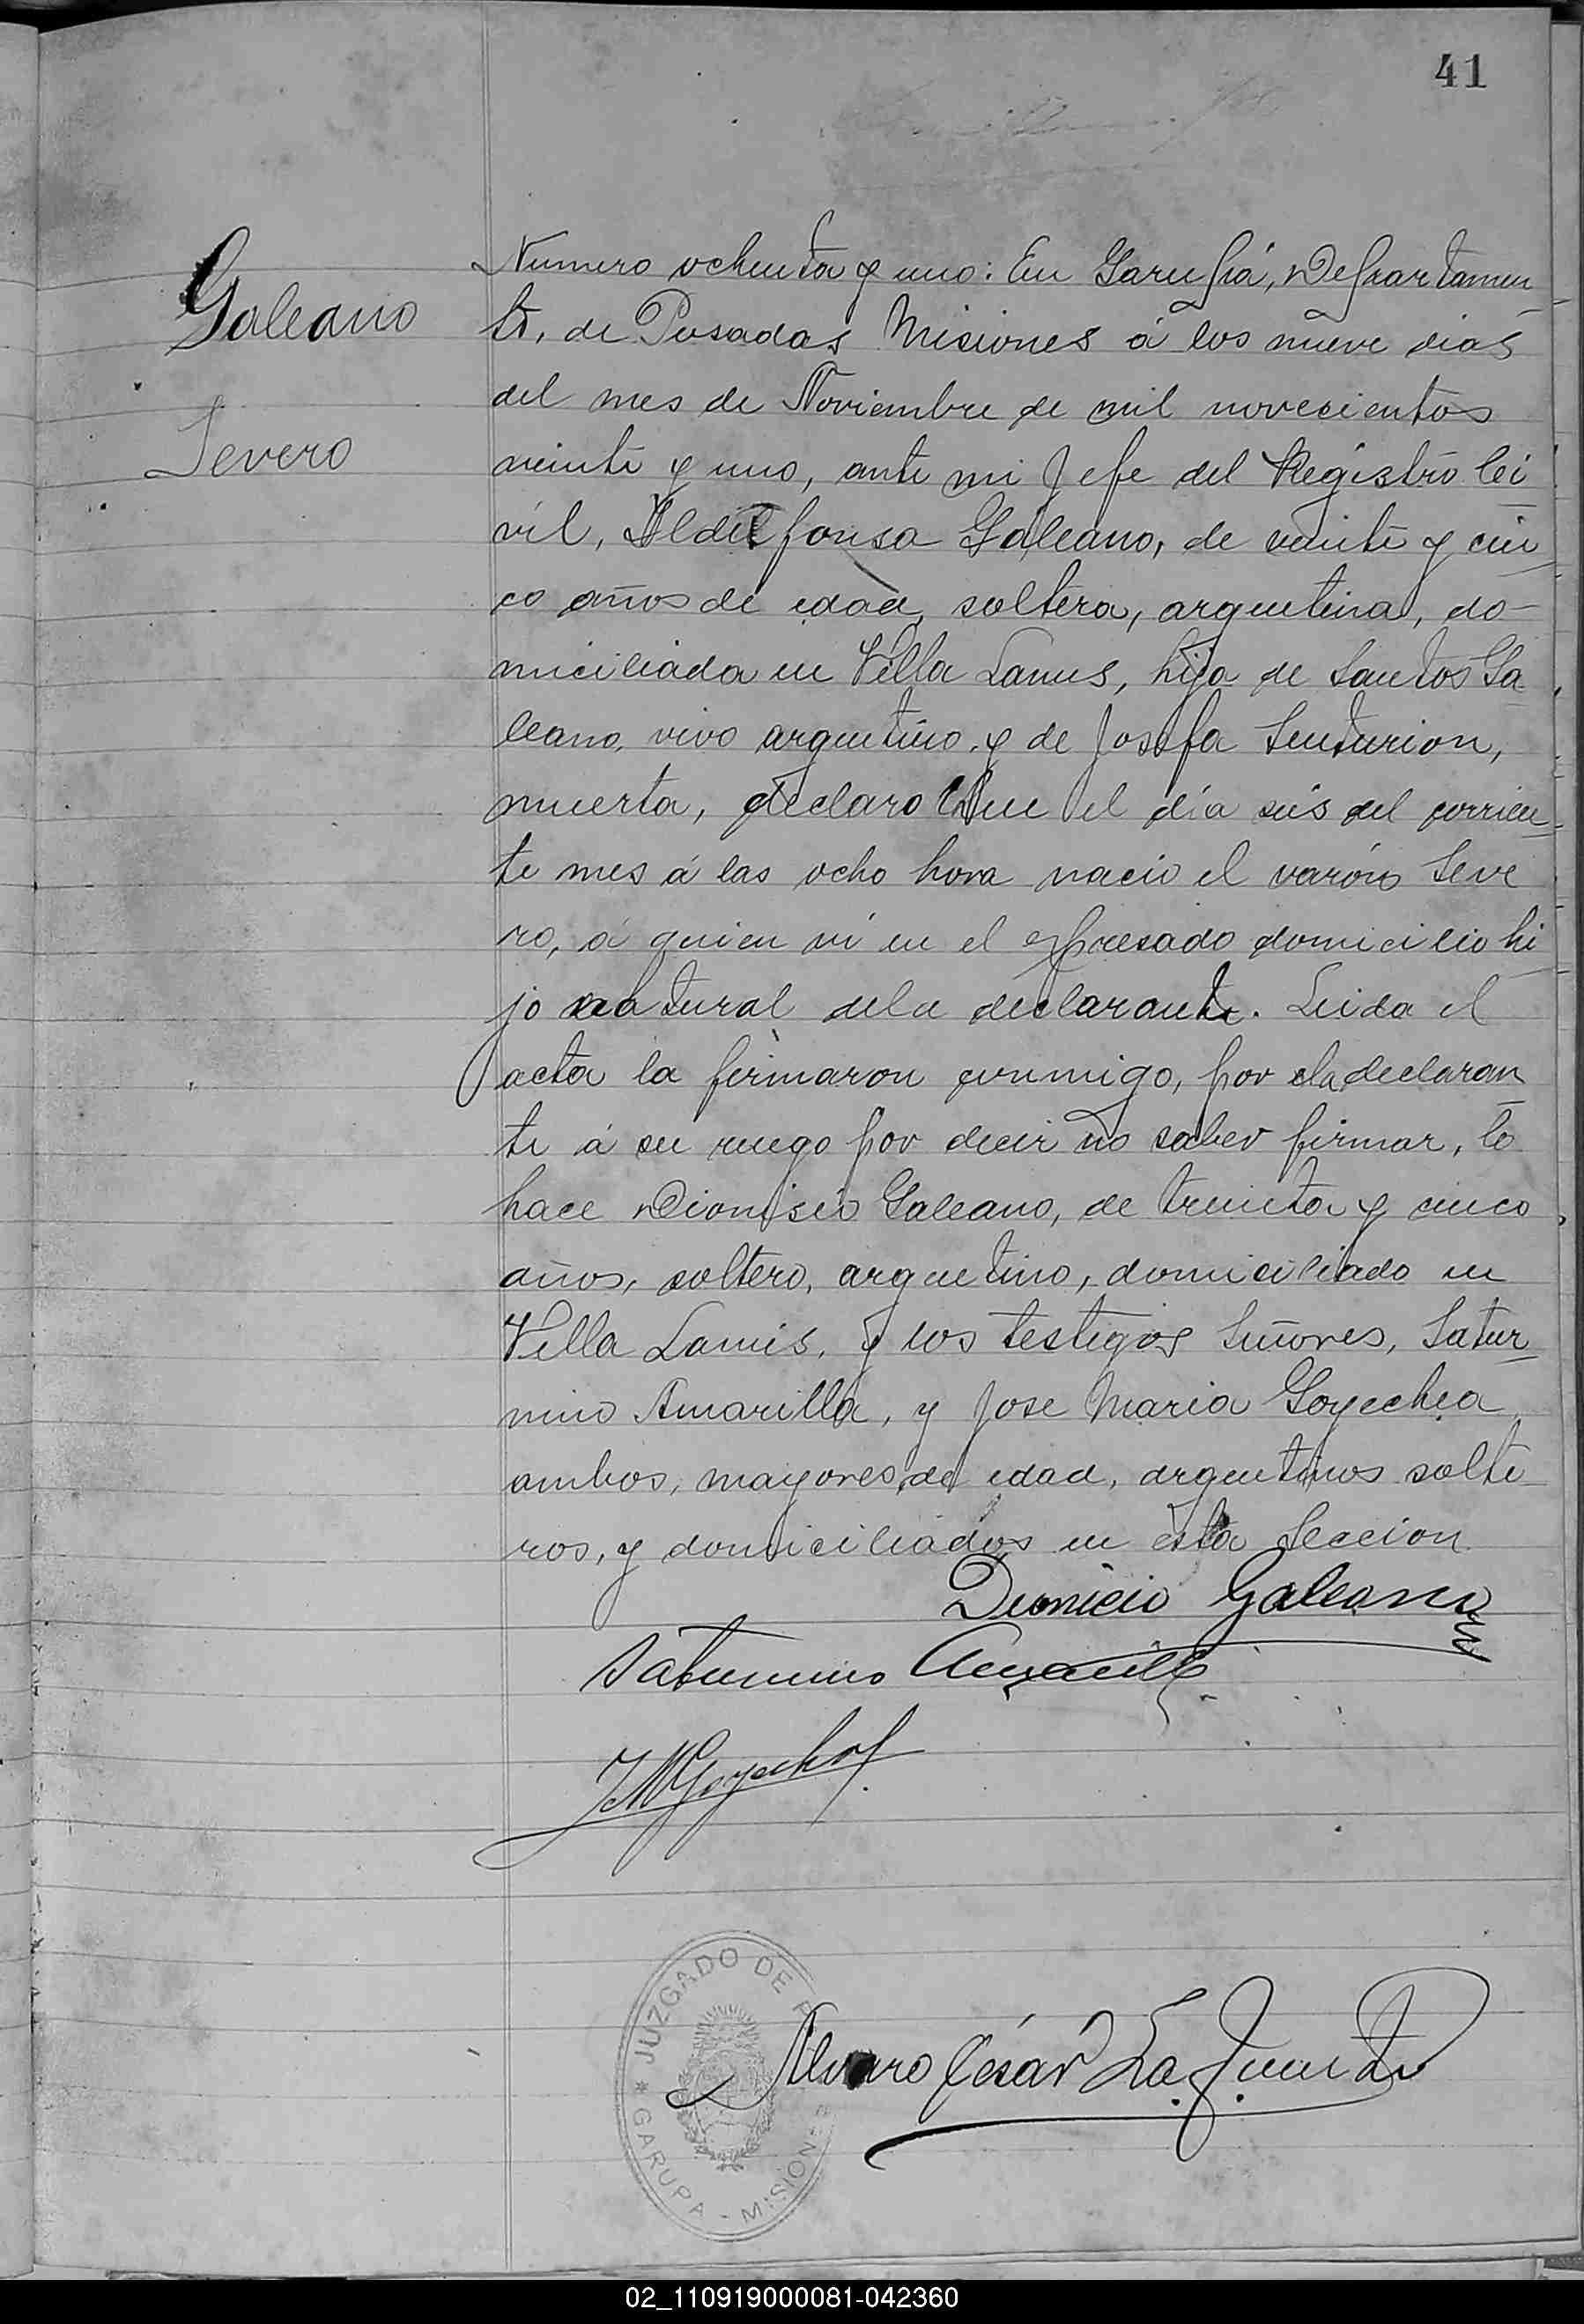 41
Galeano
Severo
Numero ochenta y uno: En Garupá, Departamen
to, de Posadas Misiones á los nueve dias
del mes de Noviembre de mil novecientos
veinte y uno, ante mi Jefe del Registro Ci
vil, Ildelfonsa Galeano, de veinte y cin
co años de edad, soltera, argentina, do-
miciliada en Villa Lanus, hija de Santos Ga
leano, vivo argentino, y de Josefa Senturion,
muerta, declaro Que el día seis del corrien
te mes á las ocho hora nacio el varón Seve
ro, á quien ví en el expresado domicilio hi
jo natural dela declarante. Leida el
acta la firmaron conmigo, por la declaran
te á su ruego por decir no saber firmar, lo
hace Dionisio Galeano, de treinta y cinco
años, soltero, argentino, domiciliado en
Villa Lanus, y los testigos Señores, Satur
nino Amarilla, y Jose Maria Goyechea
ambos, mayores de edad, argentinos solte
ros, y domiciliados en ésta Seccion
Dionicio Galeano
Saturnino Amarilla
JMGoyechea
JUZGADO DE P
Alvaro César La
* GARUPA - MISIONES
02_110919000081-042360